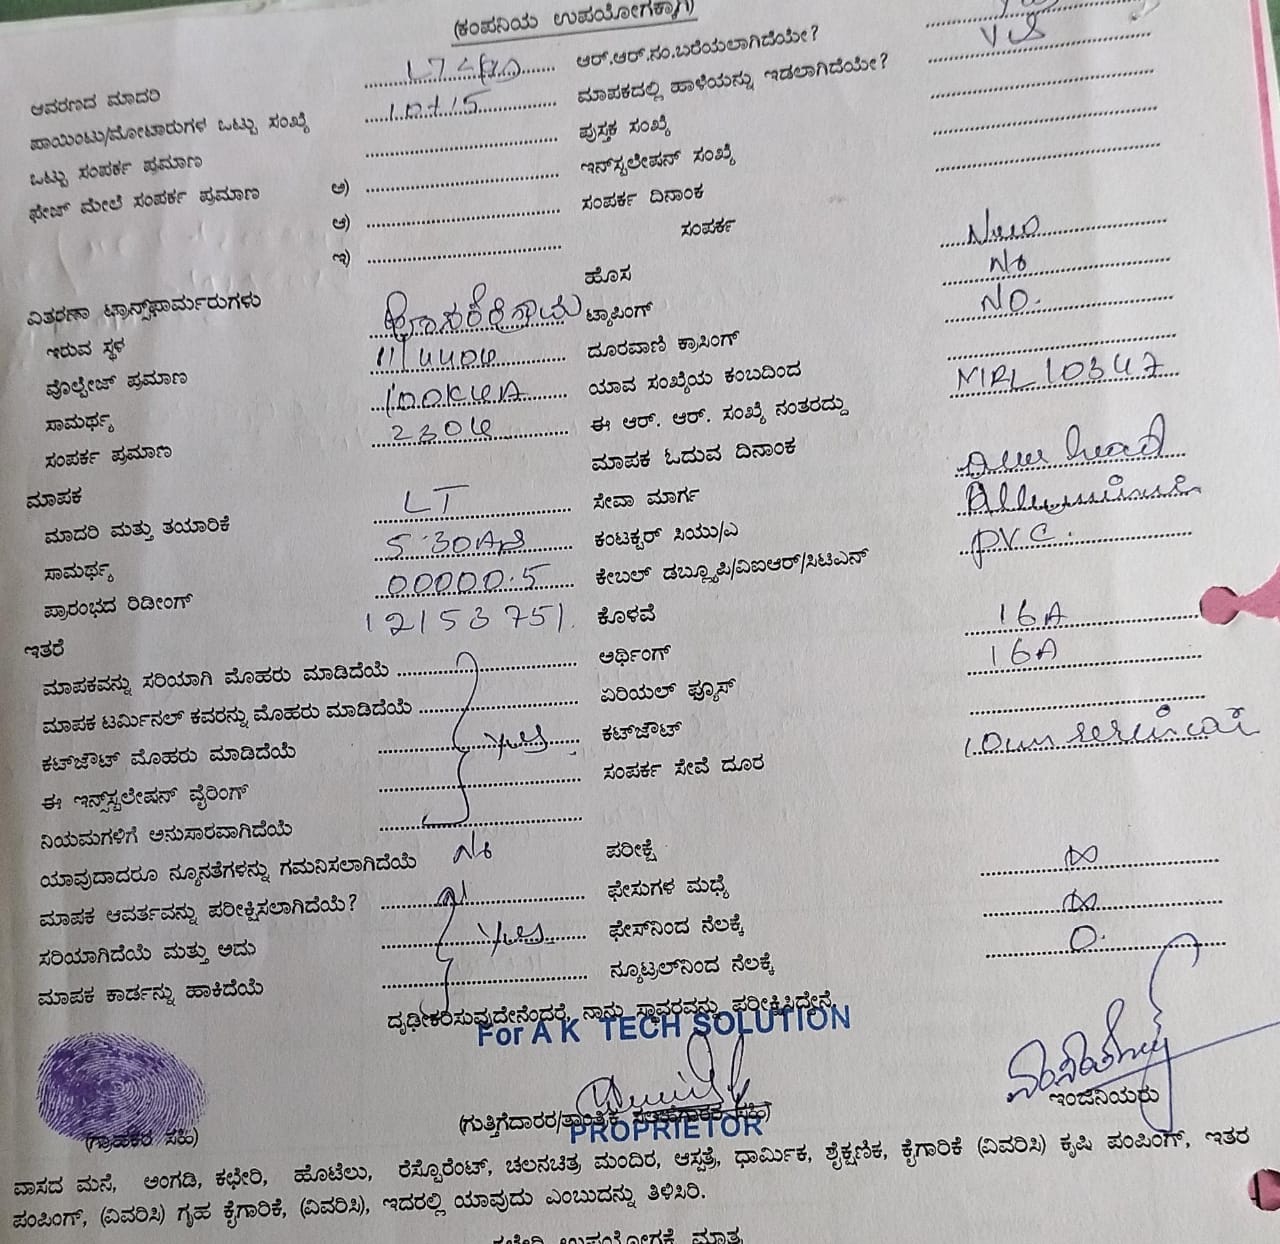 (ಕಂಪನಿಯ ಉಪಯೋಗಕ್ಕಾಗಿ)
ಆವರಣದ ಮಾದರಿ ಆರ್.ಆರ್.ಸಂ.ಬರೆಯಲಾಗಿದೆಯೇ?
ಪಾಯಿಂಟು/ಮೋಟಾರುಗಳ ಒಟ್ಟು ಸಂಖ್ಯೆ ಮಾಪಕದಲ್ಲಿ ಹಾಳೆಯನ್ನು ಇಡಲಾಗಿದೆಯೇ?
ಒಟ್ಟು ಸಂಪರ್ಕ ಪ್ರಮಾಣ ಪುಸ್ತಕ ಸಂಖ್ಯೆ
ಫೇಜ್ ಮೇಲೆ ಸಂಪರ್ಕ ಪ್ರಮಾಣ ಅ) ಇನ್‌ಸ್ಟಲೇಷನ್ ಸಂಖ್ಯೆ
ಆ) ಸಂಪರ್ಕ ದಿನಾಂಕ
ಇ) ಸಂಪರ್ಕ
ವಿತರಣಾ ಟ್ರಾನ್ಸ್‌ಫಾರ್ಮರುಗಳು ಹೊಸ New
ಇರುವ ಸ್ಥಳ ಟ್ಯಾಪಿಂಗ್ No
ವೊಲ್ಟೇಜ್ ಪ್ರಮಾಣ ದೂರವಾಣಿ ಕ್ರಾಸಿಂಗ್ NO.
ಸಾಮರ್ಥ್ಯ 100KVA ಯಾವ ಸಂಖ್ಯೆಯ ಕಂಬದಿಂದ
ಸಂಪರ್ಕ ಪ್ರಮಾಣ 230V ಈ ಆರ್. ಆರ್. ಸಂಖ್ಯೆ ನಂತರದ್ದು MRL 10347
ಮಾಪಕ ಮಾಪಕ ಓದುವ ದಿನಾಂಕ
ಮಾದರಿ ಮತ್ತು ತಯಾರಿಕೆ LT ಸೇವಾ ಮಾರ್ಗ head
ಸಾಮರ್ಥ್ಯ 5-30A ಕಂಟಕ್ಟರ್ ಸಿಯು/ಎ
ಪ್ರಾರಂಭದ ರಿಡೀಂಗ್ 00000.5 ಕೇಬಲ್ ಡಬ್ಲ್ಯೂಪಿ/ವಿಐಆರ್/ಸಿಟಿಎಸ್ PVC.
ಇತರೆ 12153751. ಕೊಳವೆ
ಮಾಪಕವನ್ನು ಸರಿಯಾಗಿ ಮೊಹರು ಮಾಡಿದೆಯೆ ಅರ್ಥಿಂಗ್ 16A
ಮಾಪಕ ಟರ್ಮಿನಲ್ ಕವರನ್ನು ಮೊಹರು ಮಾಡಿದೆಯೆ ಏರಿಯಲ್ ಫ್ಯೂಸ್ 16A
ಕಟ್‌ಔಟ್ ಮೊಹರು ಮಾಡಿದೆಯೆ Yes ಕಟ್‌ಔಟ್
ಈ ಇನ್ಸ್‌ಸ್ಟಲೇಷನ್ ವೈರಿಂಗ್ ಸಂಪರ್ಕ ಸೇವೆ ದೂರ
ನಿಯಮಗಳಿಗೆ ಅನುಸಾರವಾಗಿದೆಯೆ
ಯಾವುದಾದರೂ ನ್ಯೂನತೆಗಳನ್ನು ಗಮನಿಸಲಾಗಿದೆಯೆ No ಪರೀಕ್ಷೆ
ಮಾಪಕ ಆವರ್ತವನ್ನು ಪರೀಕ್ಷಿಸಲಾಗಿದೆಯೆ? ಫೇಸುಗಳ ಮಧ್ಯೆ ∞
ಸರಿಯಾಗಿದೆಯೆ ಮತ್ತು ಅದು Yes ಫೇಸ್‌ನಿಂದ ನೆಲಕ್ಕೆ ∞
ಮಾಪಕ ಕಾರ್ಡನ್ನು ಹಾಕಿದೆಯೆ ನ್ಯೂಟ್ರಲ್‌ನಿಂದ ನೆಲಕ್ಕೆ 0.
ದೃಢೀಕರಿಸುವುದೇನೆಂದರೆ, ನಾನು ಸ್ಥಾವರವನ್ನು ಪರೀಕ್ಷಿಸಿದ್ದೇನೆ.
For A K TECH SOLUTION
(ಗ್ರಾಹಕರ ಸಹಿ) (ಗುತ್ತಿಗೆದಾರರ/ತಾಂತ್ರಿಕ ಸಹಿ) ಇಂಜಿನಿಯರು
PROPRIETOR
ವಾಸದ ಮನೆ, ಅಂಗಡಿ, ಕಛೇರಿ, ಹೊಟೆಲು, ರೆಸ್ಟೊರೆಂಟ್, ಚಲನಚಿತ್ರ ಮಂದಿರ, ಆಸ್ಪತ್ರೆ, ಧಾರ್ಮಿಕ, ಶೈಕ್ಷಣಿಕ, ಕೈಗಾರಿಕೆ (ವಿವರಿಸಿ) ಕೃಷಿ ಪಂಪಿಂಗ್, ಇತರ
ಪಂಪಿಂಗ್, (ವಿವರಿಸಿ) ಗೃಹ ಕೈಗಾರಿಕೆ, (ವಿವರಿಸಿ), ಇದರಲ್ಲಿ ಯಾವುದು ಎಂಬುದನ್ನು ತಿಳಿಸಿರಿ.
ಕಛೇರಿ ಉಪಯೋಗಕ್ಕೆ ಮಾತ್ರ